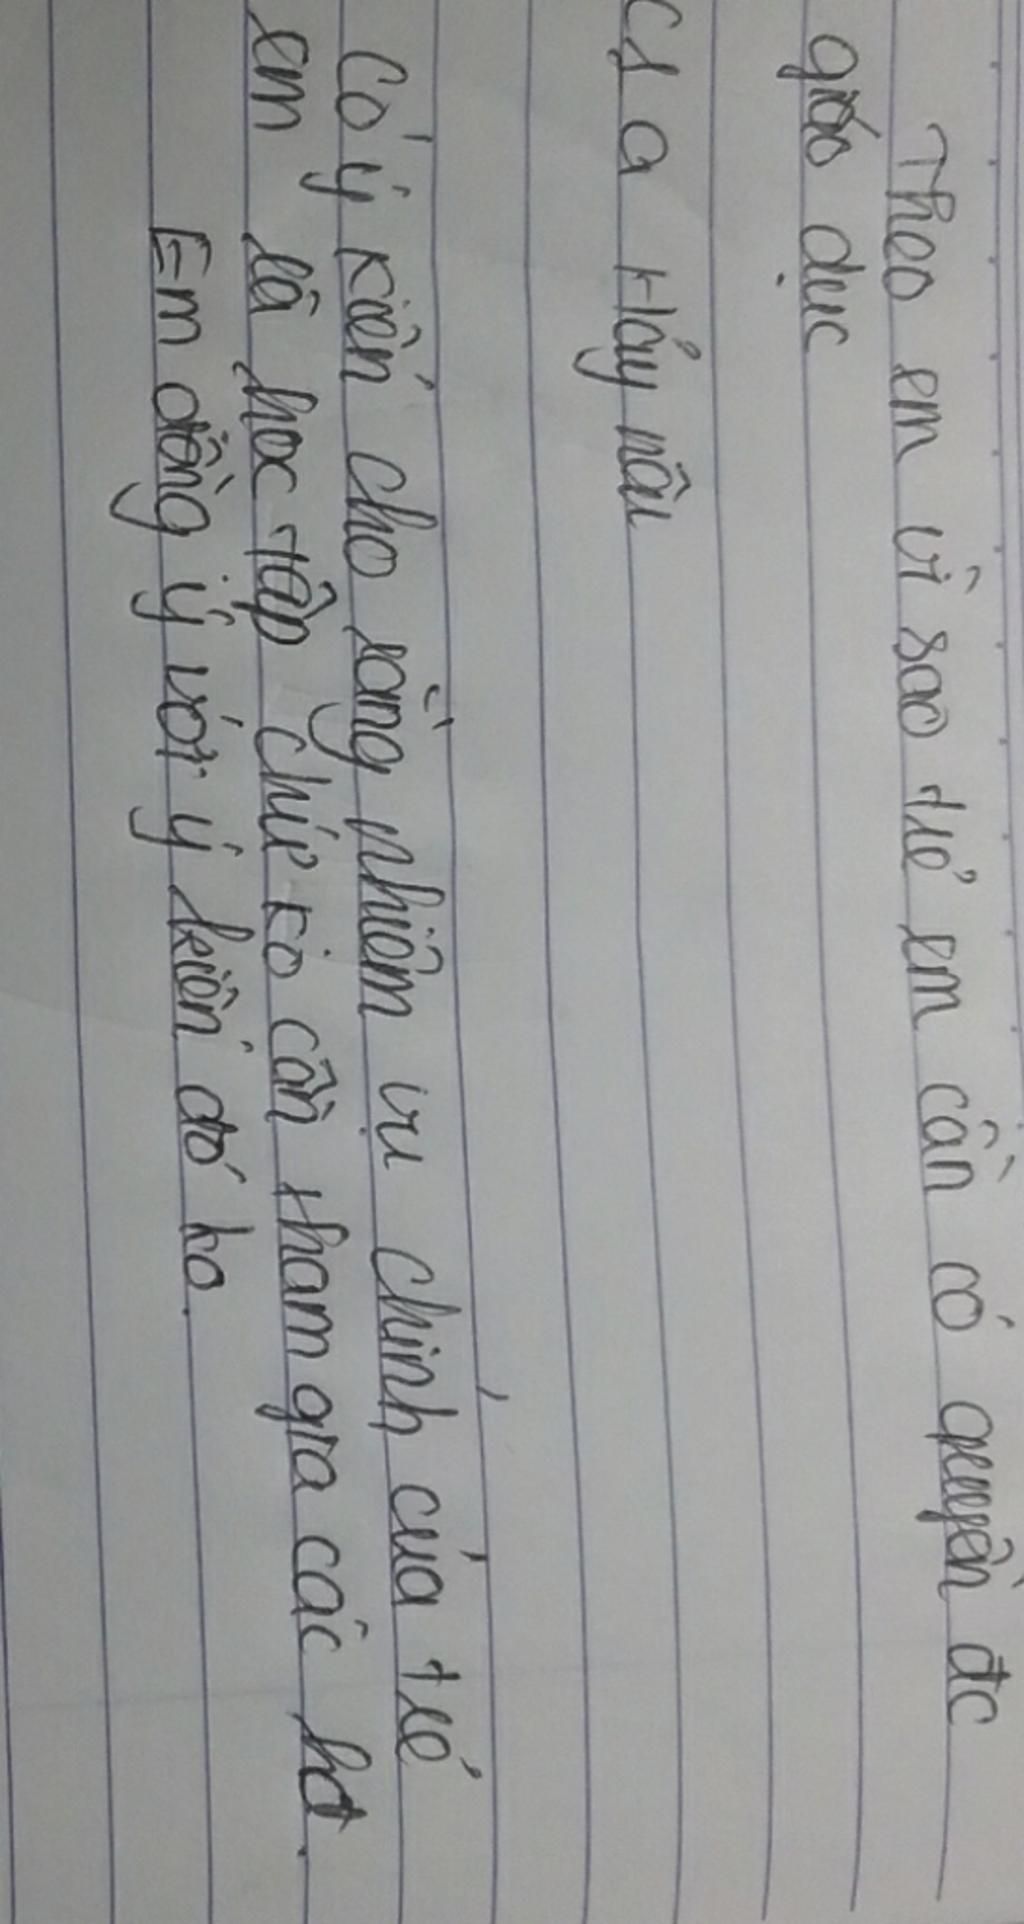 Theo em vì sao trẻ em cần có quyền đc
giáo dục
C1 a Hãy nêu
Có ý kiến cho rằng nhiệm vụ chính của trẻ
em là học tập chứ ko cần tham gia các hđ.
Em đồng ý với ý kiến đó ko.